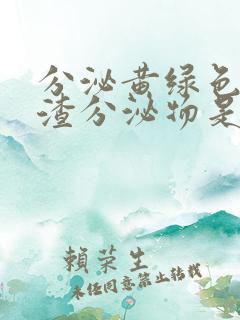 分泌黄绿色
渣分泌物是
賴荣生
未任同意禁止转载